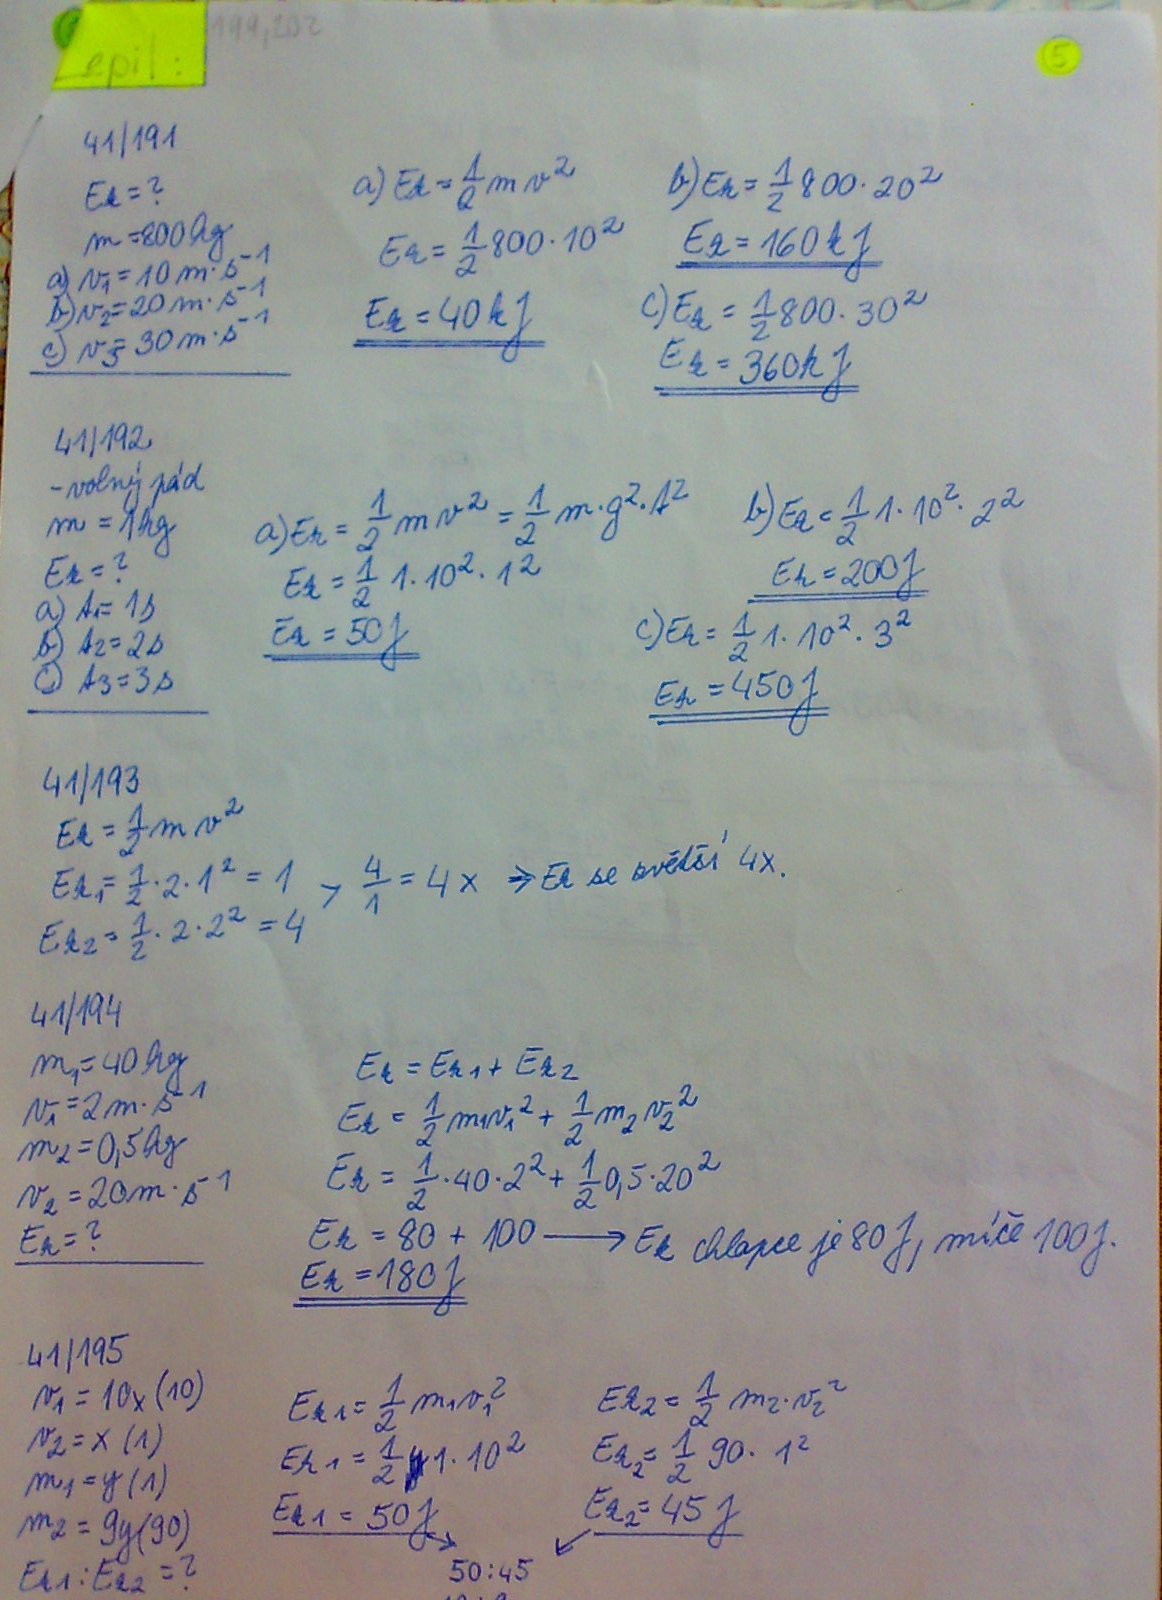 199,202
5
epil:
41/191
Ek = ?
m = 800 kg
a) v1 = 10 m·s⁻¹
b) v2 = 20 m·s⁻¹
c) v3 = 30 m·s⁻¹
a) Ek = 1/2 m v²
Ek = 1/2 800·10²
Ek = 40 kJ
b) Ek = 1/2 800·20²
Ek = 160 kJ
c) Ek = 1/2 800·30²
Ek = 360 kJ
41/192
- volný pád
m = 1 kg
Ek = ?
a) t1 = 1s
b) t2 = 2s
c) t3 = 3s
a) Ek = 1/2 m v² = 1/2 m·g²·t²
Ek = 1/2 1·10²·1²
Ek = 50 J
b) Ek = 1/2 1·10²·2²
Ek = 200 J
c) Ek = 1/2 1·10²·3²
Ek = 450 J
41/193
Ek = 1/2 m v²
Ek1 = 1/2·2·1² = 1
Ek2 = 1/2·2·2² = 4
> 4/1 = 4x ⇒ Ek se zvětší 4x.
41/194
m1 = 40 kg
v1 = 2 m·s⁻¹
m2 = 0,5 kg
v2 = 20 m·s⁻¹
Ek = ?
Ek = Ek1 + Ek2
Ek = 1/2 m1v1² + 1/2 m2v2²
Ek = 1/2·40·2² + 1/2 0,5·20²
Ek = 80 + 100 → Ek chlapce je 80 J, míče 100 J.
Ek = 180 J
41/195
v1 = 10x (10)
v2 = x (1)
m1 = y (1)
m2 = 9y (90)
Ek1 : Ek2 = ?
Ek1 = 1/2 m1v1²
Ek1 = 1/2 1·10²
Ek1 = 50 J
Ek2 = 1/2 m2·v2²
Ek2 = 1/2 90·1²
Ek2 = 45 J
50:45